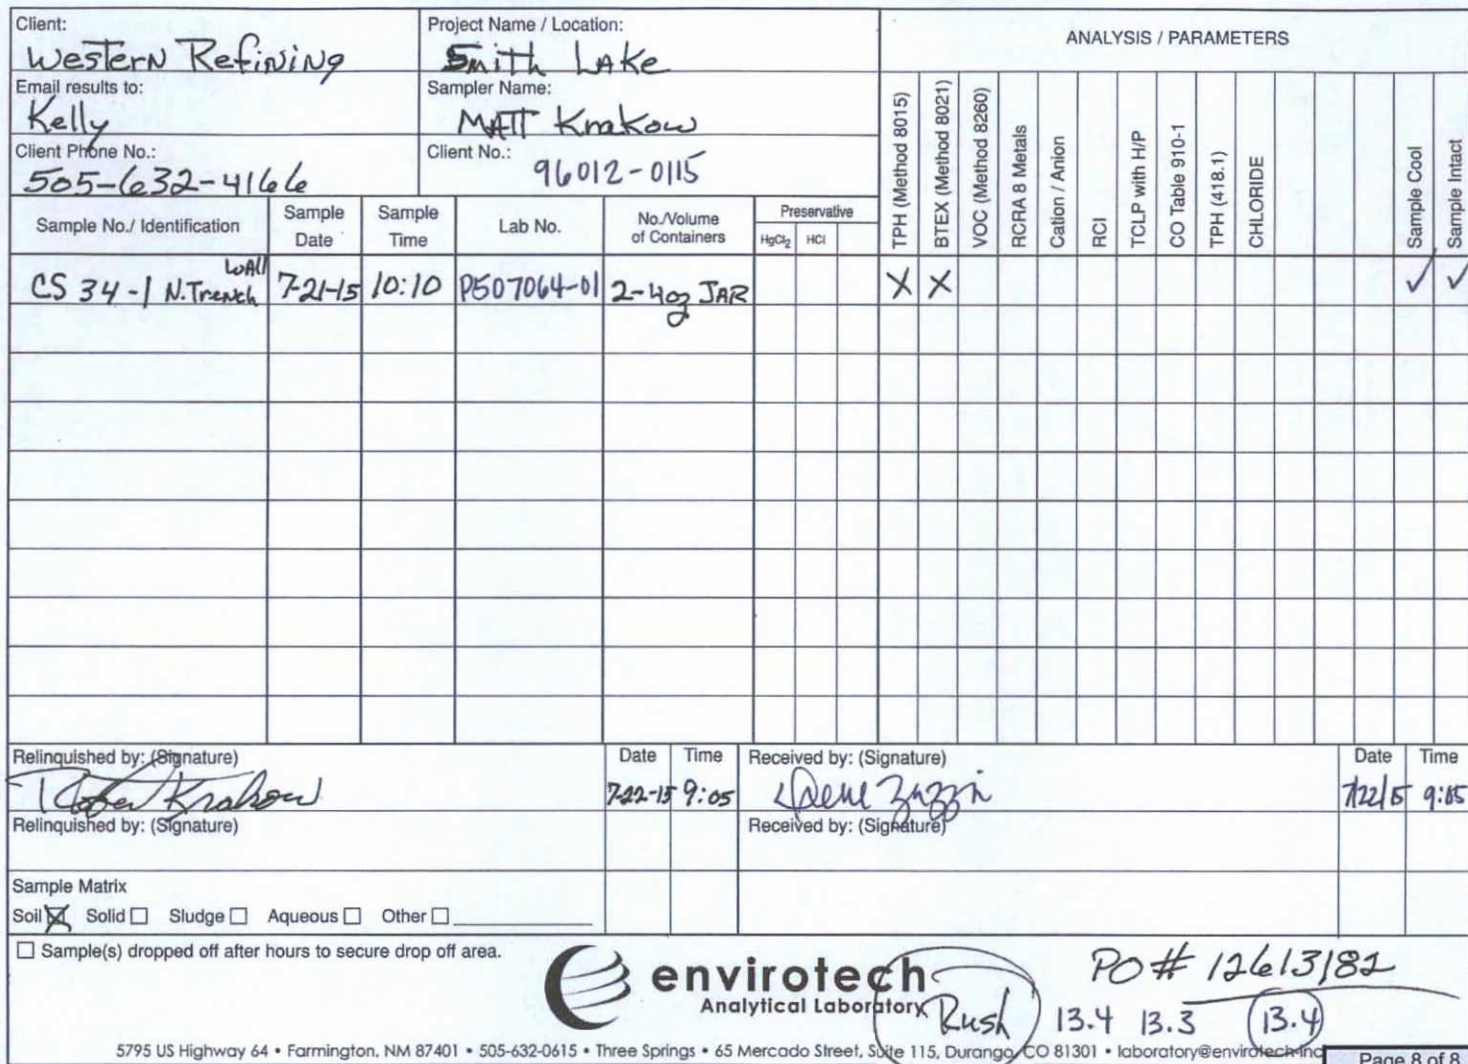 Client:
Western Refining
Project Name / Location:
Smith Lake
ANALYSIS / PARAMETERS
Email results to:
Kelly
Sampler Name:
MATT Krakow
Client Phone No.:
505-632-4166
Client No.:
96012-0115
Sample No./ Identification
Sample Date
Sample Time
Lab No.
No./Volume of Containers
Preservative
HgCl₂
HCl
TPH (Method 8015)
BTEX (Method 8021)
VOC (Method 8260)
RCRA 8 Metals
Cation / Anion
RCI
TCLP with H/P
CO Table 910-1
TPH (418.1)
CHLORIDE
Sample Cool
Sample Intact
CS 34-1 N.Trench Wall 7-21-15 10:10 P507064-01 2-4oz JAR X X ✓ ✓
Relinquished by: (Signature)
Date
Time
Received by: (Signature)
Date
Time
Krakow
7-22-15 9:05
7/22/15 9:05
Relinquished by: (Signature)
Received by: (Signature)
Sample Matrix
Soil ☒ Solid ☐ Sludge ☐ Aqueous ☐ Other ☐
☐ Sample(s) dropped off after hours to secure drop off area.
envirotech
Analytical Laboratory
Rush
PO# 12613182
13.4 13.3 13.4
5795 US Highway 64 • Farmington, NM 87401 • 505-632-0615 • Three Springs • 65 Mercado Street, Suite 115, Durango, CO 81301 • laboratory@envirotech-inc
Page 8 of 8